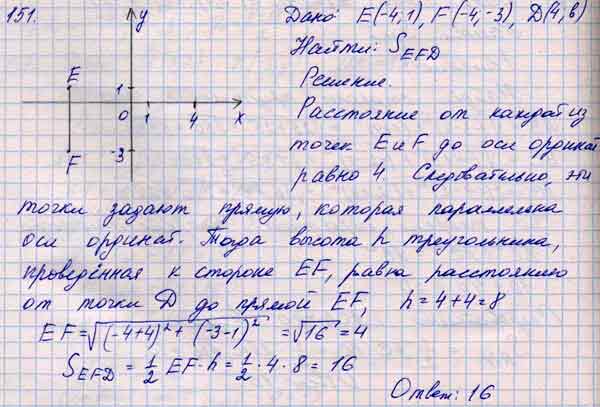 151.
Дано: E(-4,1), F(-4,-3), D(4,b)
Найти: S_EFD
Решение.
Расстояние от каждой из
точек E и F до оси ординат
равно 4 Следовательно, эти
точки задают прямую, которая параллельна
оси ординат. Тогда высота h треугольника,
проведённая к стороне EF, равна расстоянию
от точки D до прямой EF, h = 4+4 = 8
EF = √((-4+4)² + (-3-1)²) = √16 = 4
S_EFD = 1/2 EF · h = 1/2 · 4 · 8 = 16
Ответ: 16
y
E
1
0 1 4 x
F
-3